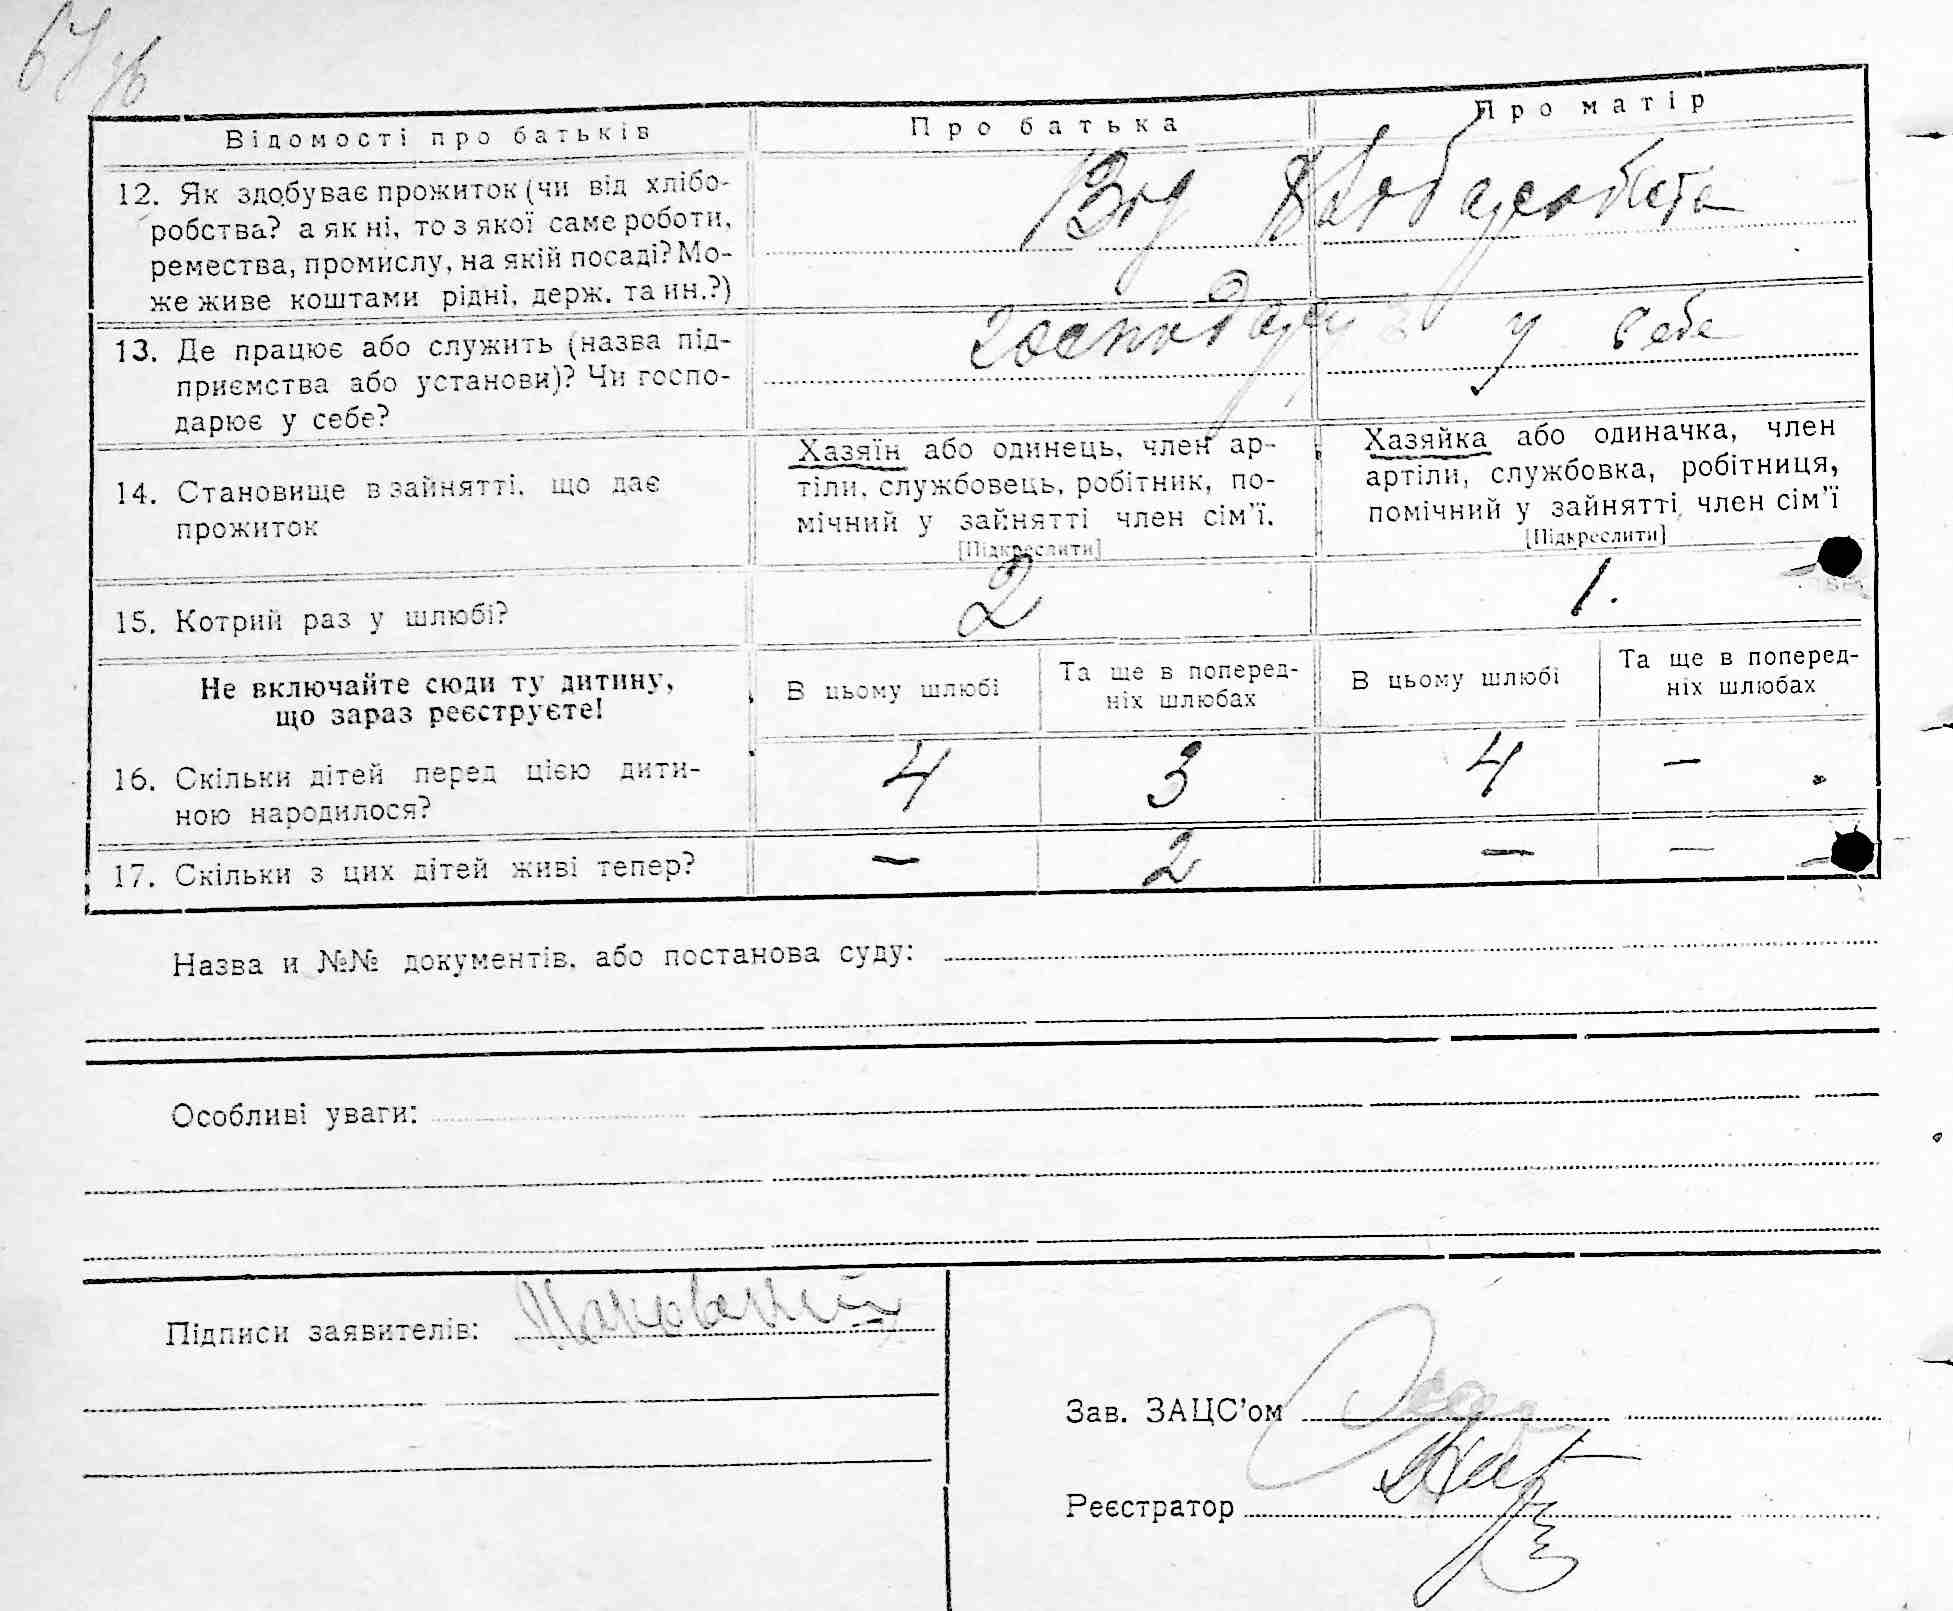 Відомості про батьків
Про батька
Про матір
12. Як здобуває прожиток (чи від хлібо-
робства? а як ні, то з якої саме роботи,
ремества, промислу, на якій посаді? Мо-
же живе коштами рідні, держ. та ин.?)
Від хліборобства
13. Де працює або служить (назва під-
приємства або установи)? Чи госпо-
дарює у себе?
господарює у себе
14. Становище в зайнятті, що дає
прожиток
Хазяїн або одинець, член ар-
тіли, службовець, робітник, по-
мічний у зайнятті член сім'ї.
[Підкреслити]
Хазяйка або одиначка, член
артіли, службовка, робітниця,
помічний у зайнятті член сім'ї
[Підкреслити]
15. Котрий раз у шлюбі?
2
1.
Не включайте сюди ту дитину,
що зараз реєструєте!
В цьому шлюбі
Та ще в поперед-
ніх шлюбах
В цьому шлюбі
Та ще в поперед-
ніх шлюбах
16. Скільки дітей перед цією дити-
ною народилося?
4
3
4
-
17. Скільки з цих дітей живі тепер?
-
2
-
-
Назва и №№ документів, або постанова суду:
Особливі уваги:
Підписи заявителів:
Зав. ЗАЦС'ом
Реєстратор